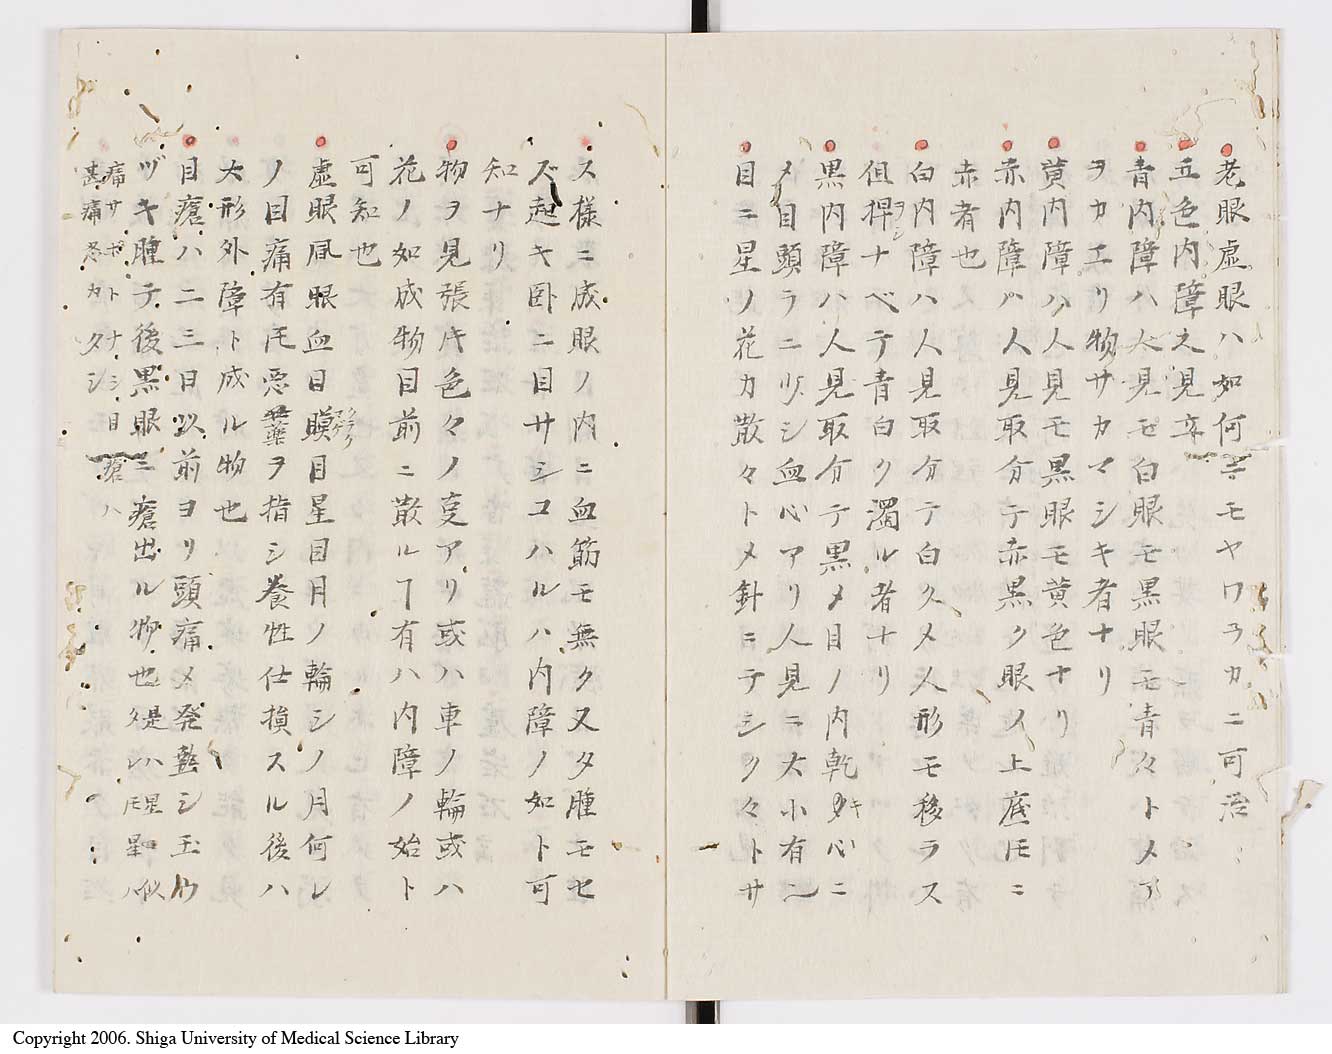 老眼虚眼ハ如何ニモヤワラカニ可治
五色内障之見立
青内障ハ人見モ白眼モ黒眼モ青々トメ
ヲカエリ物サカマシキ者ナリ
黄内障ハ人見モ黒眼モ黄色ナリ
赤内障ハ人見取分テ赤黒ク眼ノ上底ニ
赤者也
白内障ハ人見取分テ白クメ人形モ移ラス
但押ナベテ青白ク濁ル者ナリ
黒内障ハ人見取分テ黒メ目ノ内乾ク心ニ
メ目頭ラニ少シ血心アリ人見ニ大小有ン
目ニ星ノ花カ散々トメ針ニテシク々トサ
ス様ニ成眼ノ内ニ血筋モ無ク又タ腫モセ
ズ起キ卧ニ目サシコハルハ内障ノ如ト可
知ナリ
物ヲ見張色々ノ変アリ或ハ車ノ輪或ハ
花ノ如成物目前ニ散ルヿ有ハ内障ノ始ト
可知也
虚眼風眼血目目星目月ノ輪シノ月何レ
ノ目痛有圧悪薬ヲ指シ養性仕損スル後ハ
大形外障ト成ル物也
目瘡ハ二三日以前ヨリ頭痛メ発熱シ玉ウ
ヅキ腫テ後黒眼ニ瘡出ル物也是ハ星似
タレ圧星ハ
痛サホトナシ目瘡ハ
甚痛忍カタシ